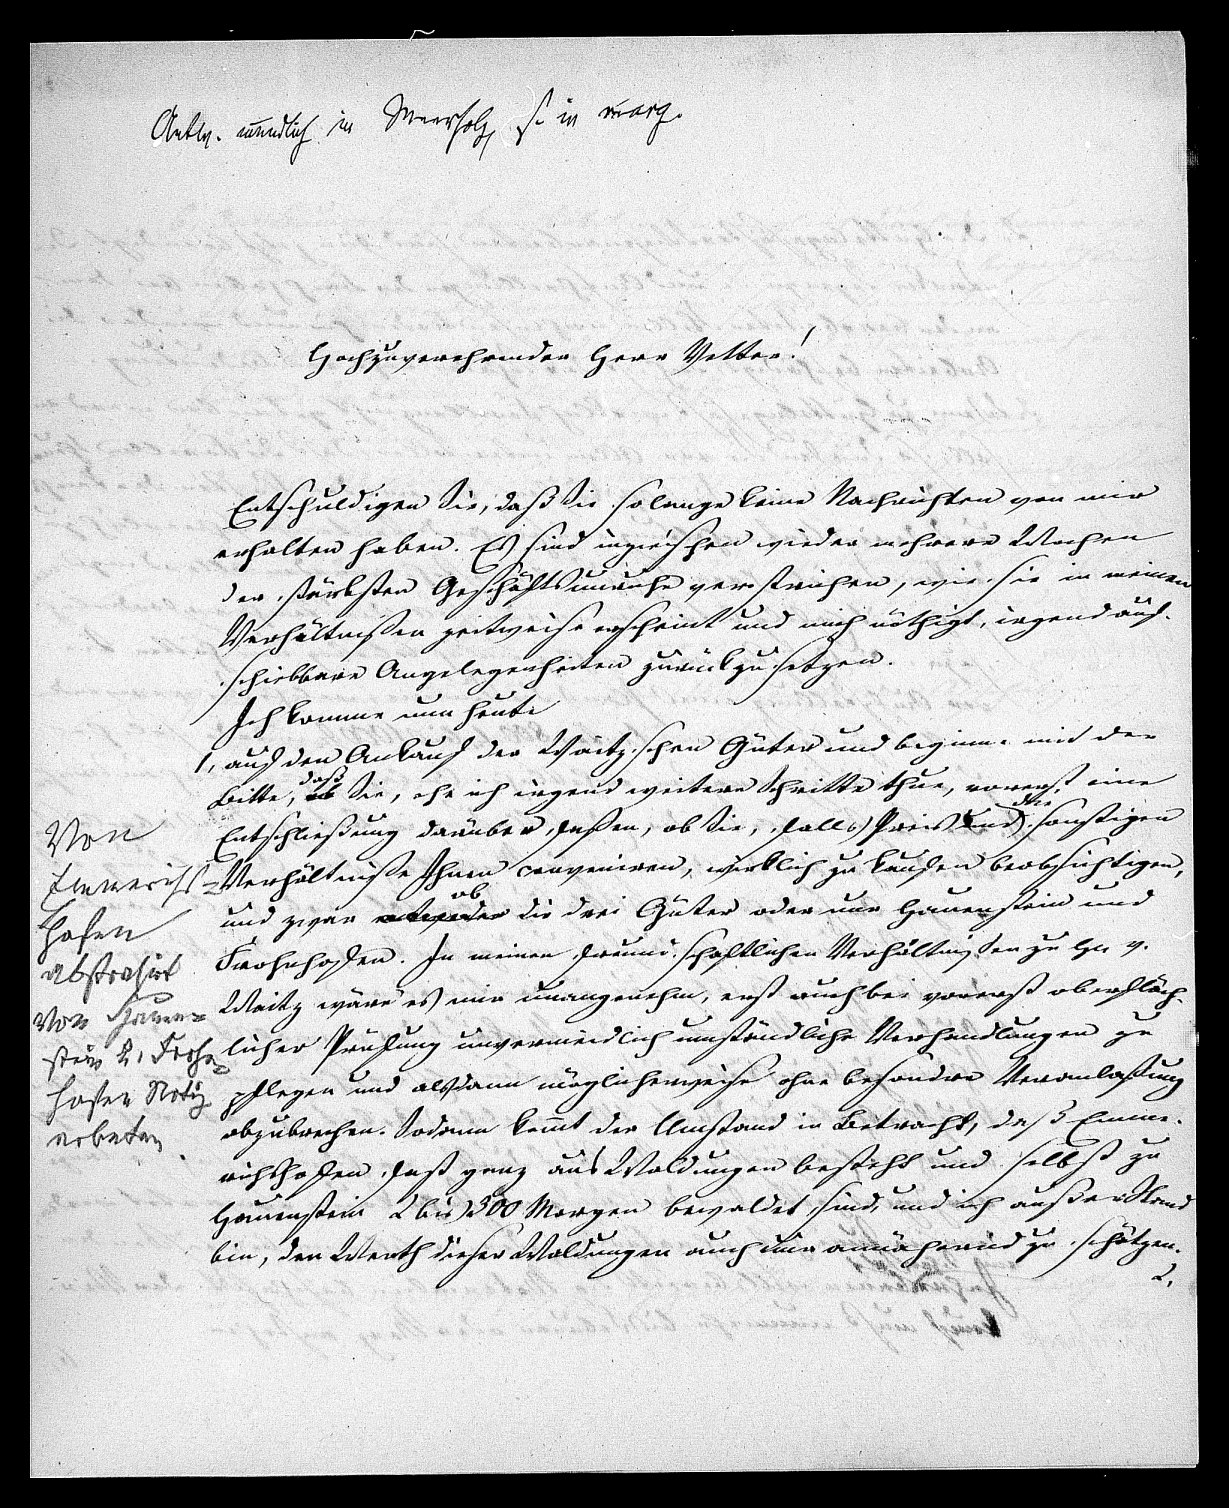 Antw. mündlich in Meerholz, s. in marg.
Hochzuverehrender Herr Vetter!
Entschuldigen Sie, daß Sie so lange keine Nachrichten von mir
erhalten haben. Es sind inzwischen wieder mehrere Wochen
der stärksten Geschäftsunruhe verstrichen, wie sie in meinen
Verhältnißen zeitweise erscheint und mich nöthigt, irgend auf-
schiebbare Angelegenheiten zurückzusetzen.
Ich komme nun heute
1, auf den Ankauf der Waitz'schen Güter und beginne mit der
Bitte, daß Sie, ehe ich irgend weitere Schritte thue, vorerst eine
Entschließung darüber faßen, ob Sie, falls Preis und die sonstigen
Verhältniße Ihnen conveniren, wirklich zu kaufen beabsichtigen,
und zwar ob die drei Güter oder nur Hauenstein und
Frohnhofen. In meinen freundschaftlichen Verhältnißen zu Hn v.
Waitz wäre es mir unangenehm, erst auch bei vorerst oberfläch-
licher Prüfung unvermeidlich umständliche Verhandlungen zu
pflegen und alsdann möglicherweise ohne besondre Veranlaßung
abzubrechen. Sodann kömt der Umstand in Betracht, daß Emme-
richshofen fast ganz aus Waldungen besteht und selbst zu
Hauenstein 2 bis 300 Morgen bewaldet sind, und ich außer Stand
bin, den Werth dieser Waldungen auch nur annähernd zu schätzen.
2,
Von
Emmerichs-
hofen
abstrahirt
Von Hauen-
stein u. Frohn-
hofen Notiz
erbeten